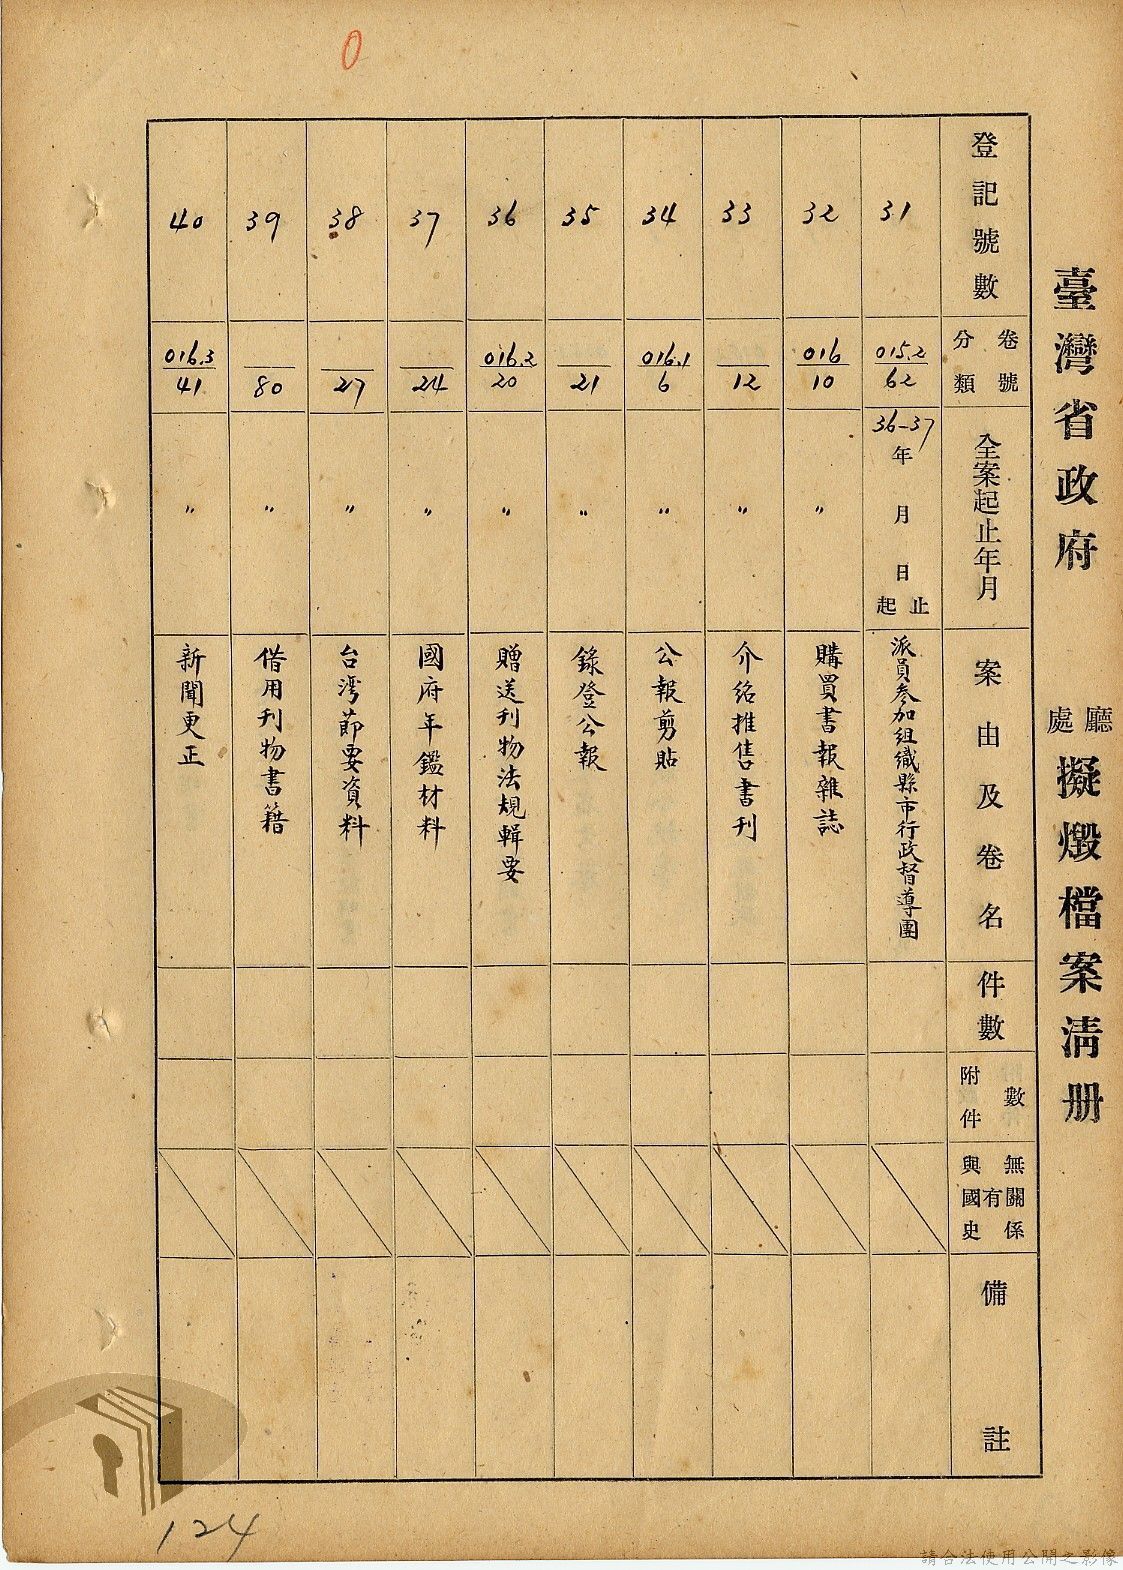 0
臺灣省政府　廳處擬燬檔案清册
登記號數
分類卷號
全案起止年月
案由及卷名
件數
附件數
與國史有無關係
備註
31
015.2
62
36-37
年　月　日
起止
派員參加組織縣市行政督導團
32
016
10
〃
購買書報雜誌
33
12
〃
介紹推售書刊
34
016.1
6
〃
公報剪貼
35
21
〃
錄登公報
36
016.2
20
〃
贈送刊物法規輯要
37
24
〃
國府年鑑材料
38
27
〃
台灣節要資料
39
80
〃
借用刊物書籍
40
016.3
41
〃
新聞更正
124
請合法使用公開之影像